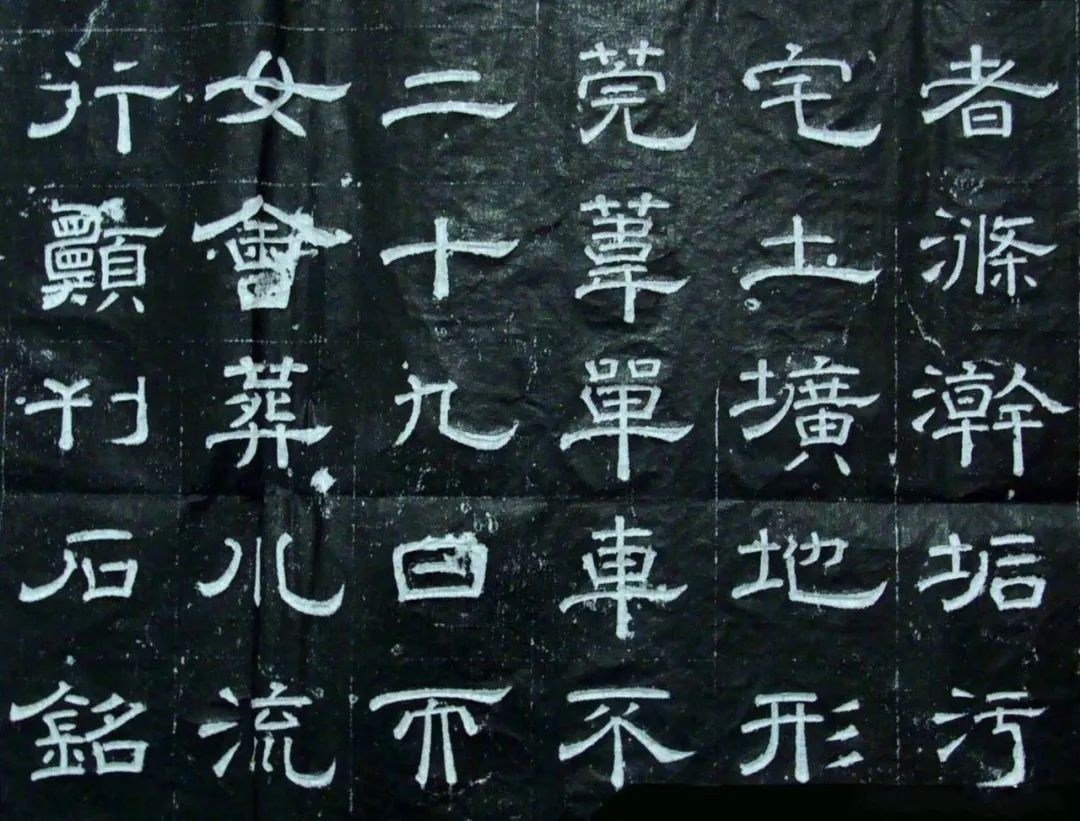 者滌澣垢汚
宅土壙地形
莞葦單車不
二十九日而
女會葬川流
行刊石銘